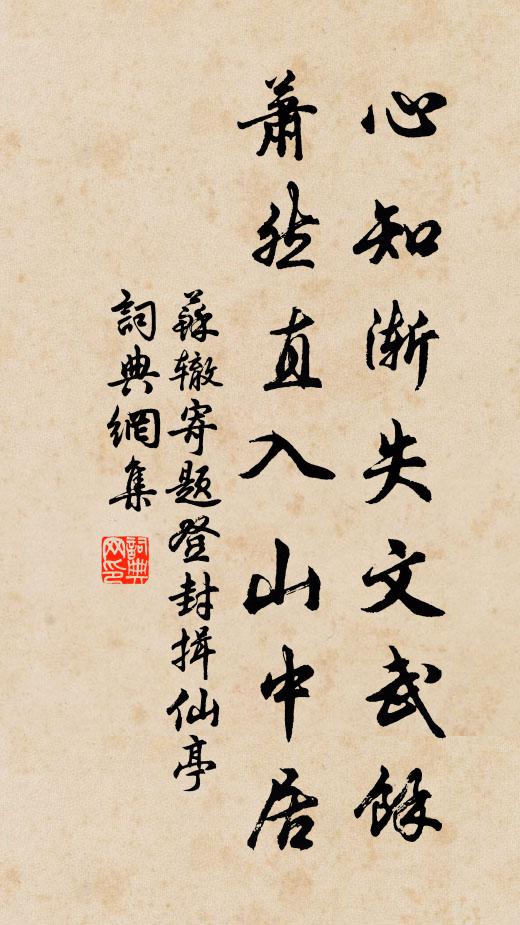 心知漸失文武餘
蕭然直入山中居
蘇辙寄題登封揖仙亭
詞典網集
詞典網印